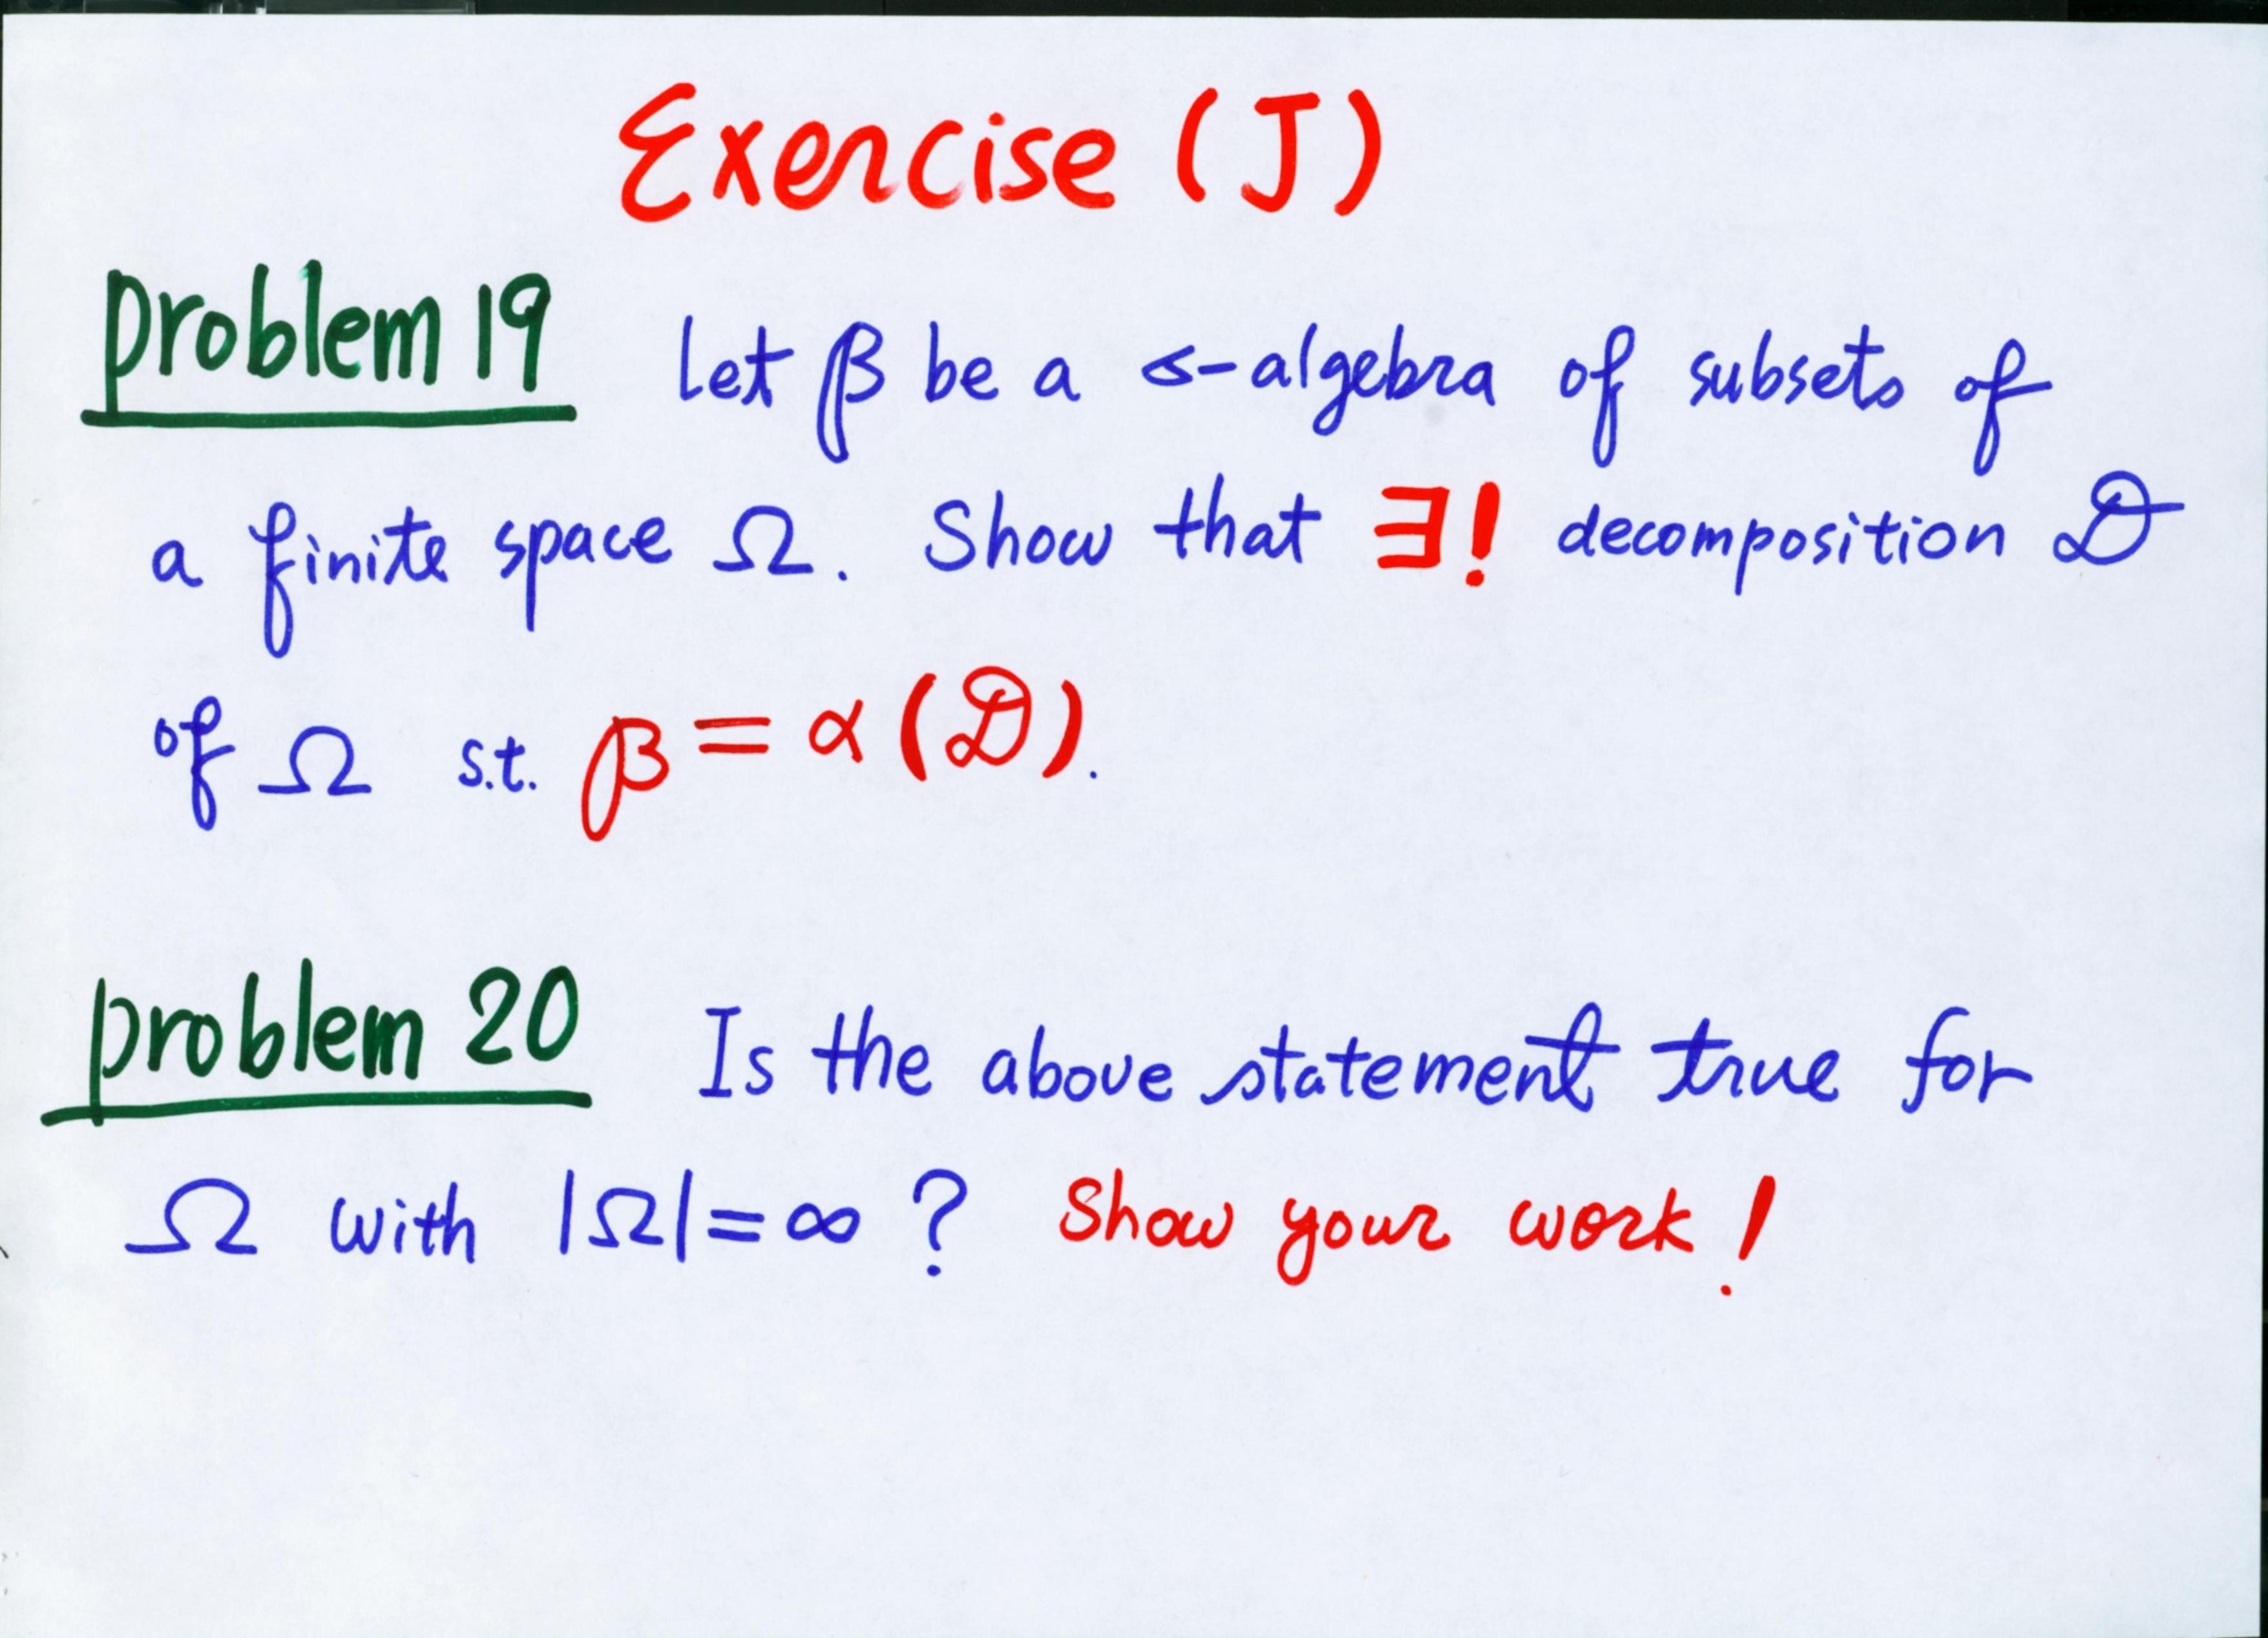 Exercise (J)
problem 19 Let β be a σ-algebra of subsets of
a finite space Ω. Show that ∃! decomposition 𝒟
of Ω s.t. β = α(𝒟).
problem 20 Is the above statement true for
Ω with |Ω| = ∞ ? Show your work !